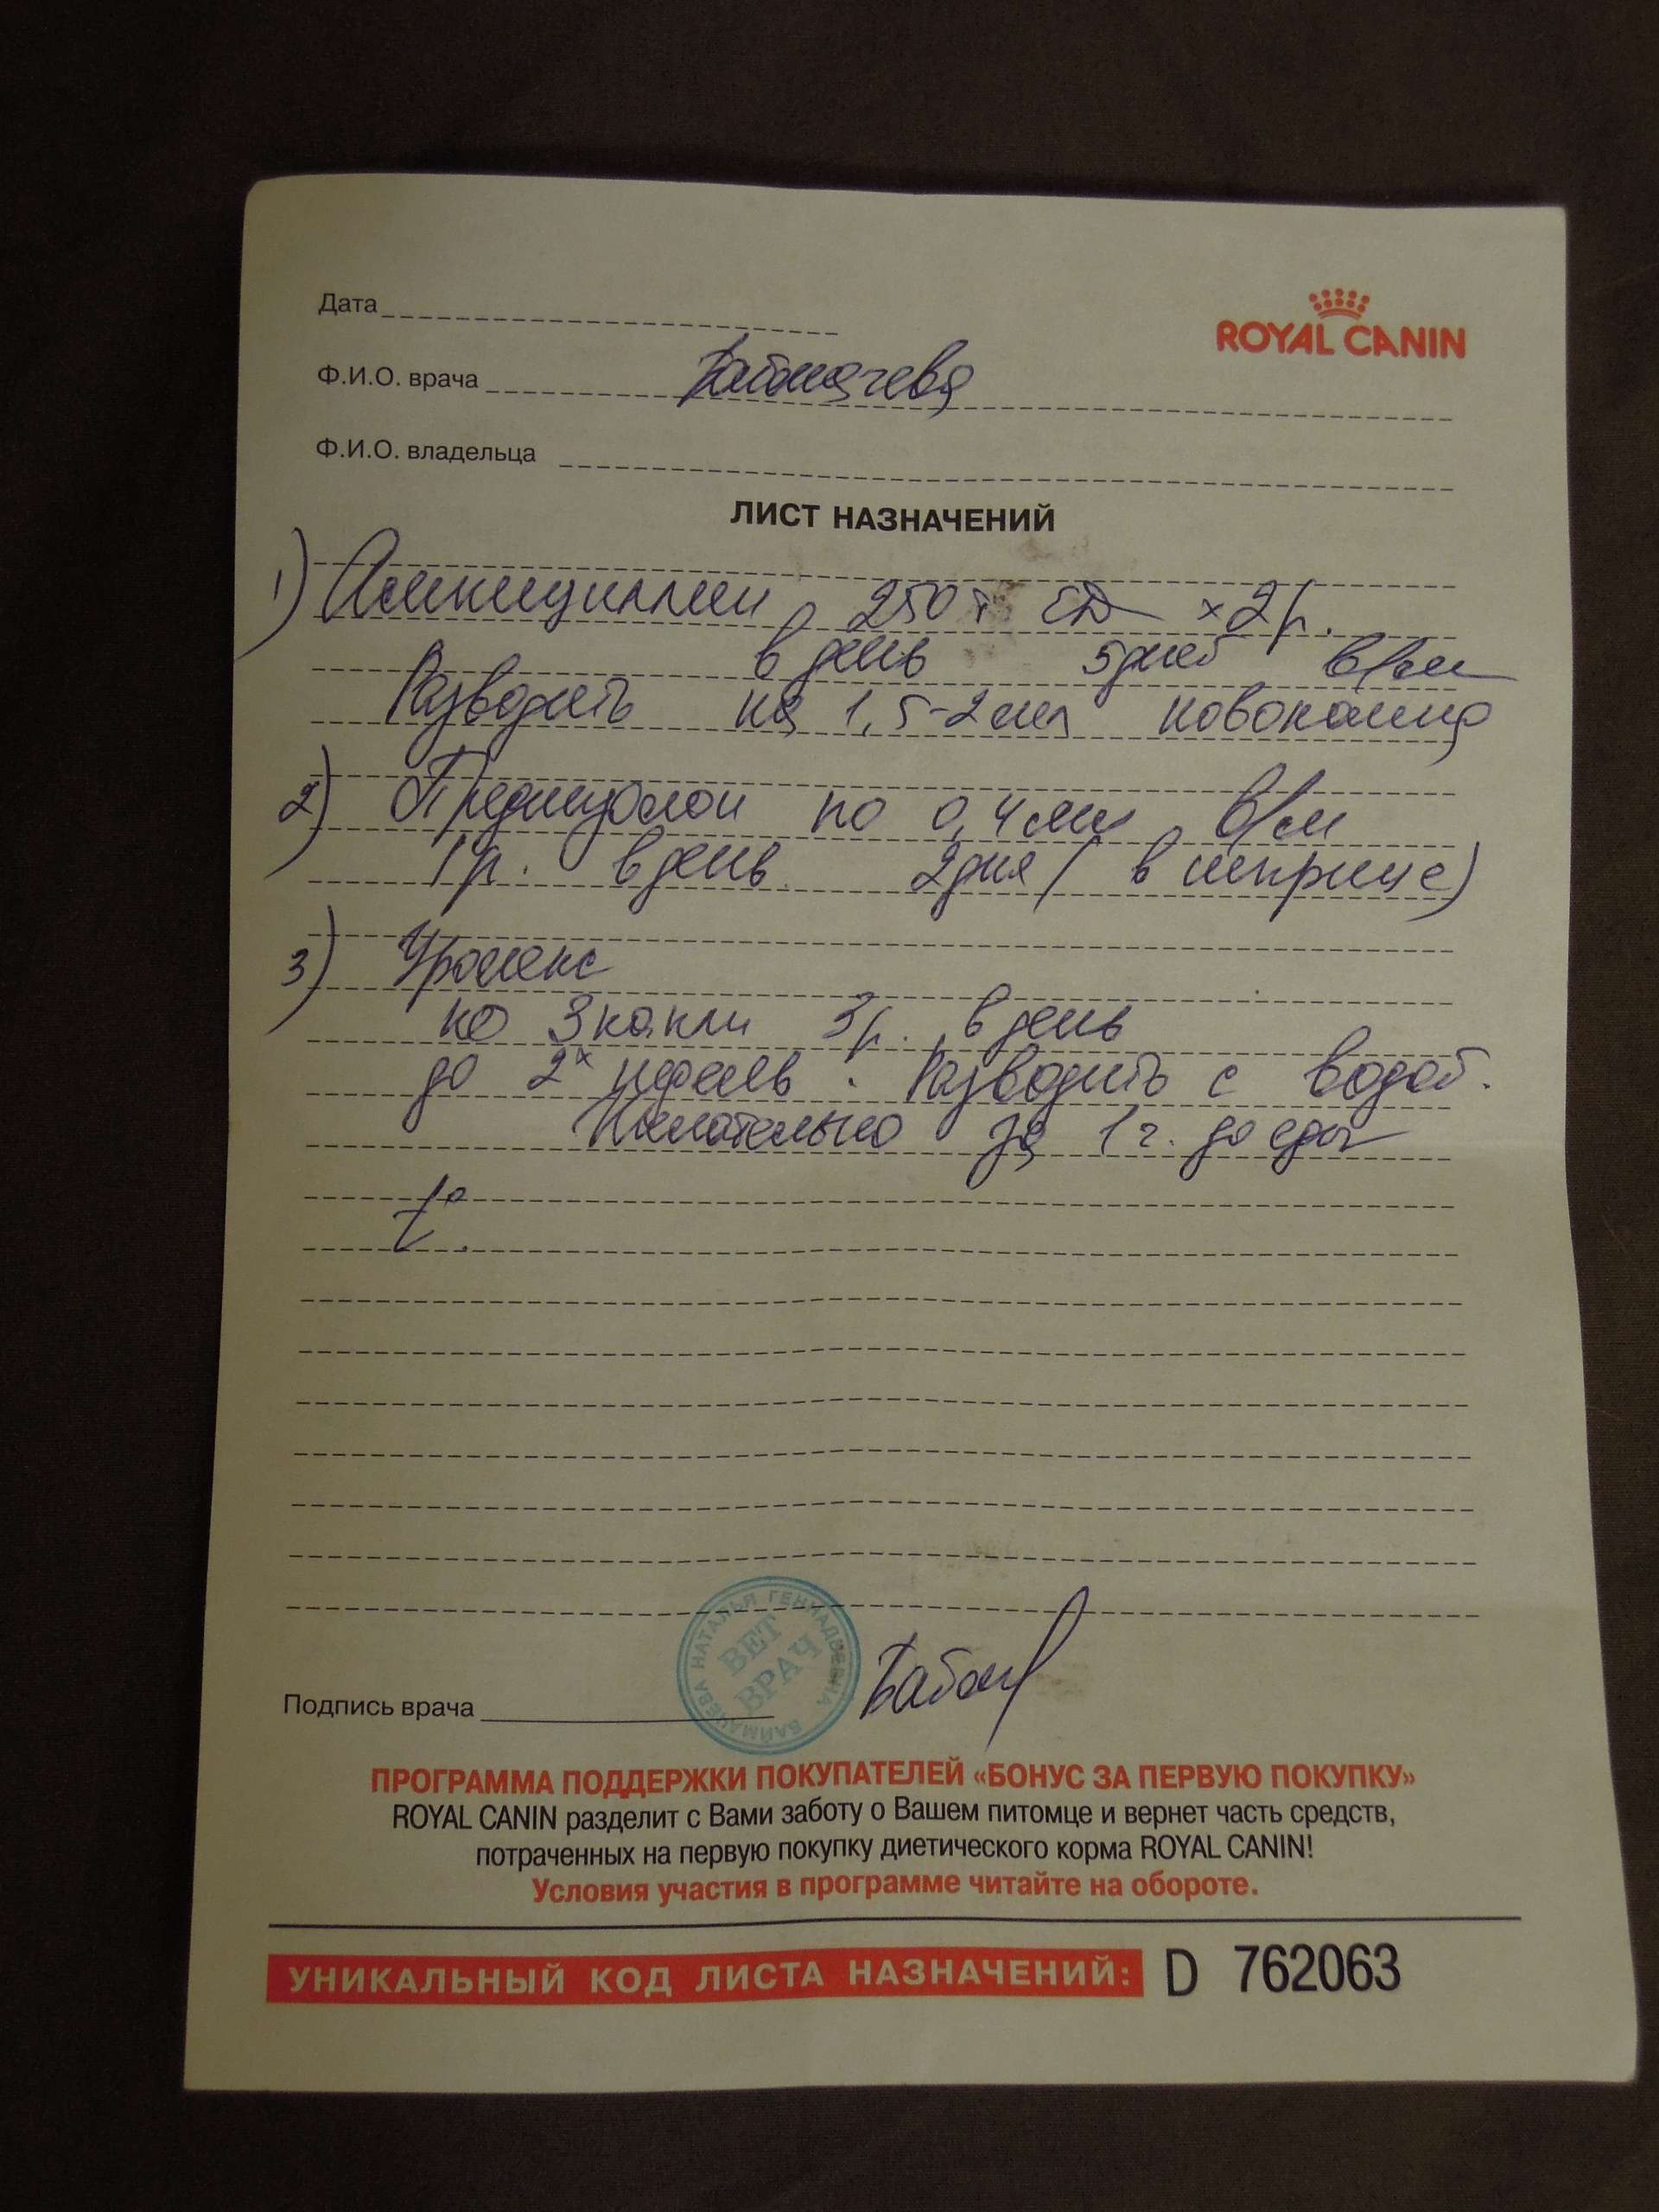 Дата
ROYAL CANIN
Ф.И.О. врача Баймачева
Ф.И.О. владельца
ЛИСТ НАЗНАЧЕНИЙ
1) Ампициллин 250 т ЕД х 2 р.
в день 5 дней в/м
Разводить на 1,5-2 мл новокаина
2) Преднизолон по 0,4 мл в/м
1 р. в день 2 дня (в шприце)
3) Уролекс
по 3 капли 3 р. в день
до 2х недель. Разводить с водой.
Желательно за 1 ч. до еды
t°.
БАЙМАЧЕВА НАТАЛЬЯ ГЕННАДЬЕВНА
ВЕТ
ВРАЧ
Подпись врача
ПРОГРАММА ПОДДЕРЖКИ ПОКУПАТЕЛЕЙ «БОНУС ЗА ПЕРВУЮ ПОКУПКУ»
ROYAL CANIN разделит с Вами заботу о Вашем питомце и вернет часть средств,
потраченных на первую покупку диетического корма ROYAL CANIN!
Условия участия в программе читайте на обороте.
УНИКАЛЬНЫЙ КОД ЛИСТА НАЗНАЧЕНИЙ: D 762063